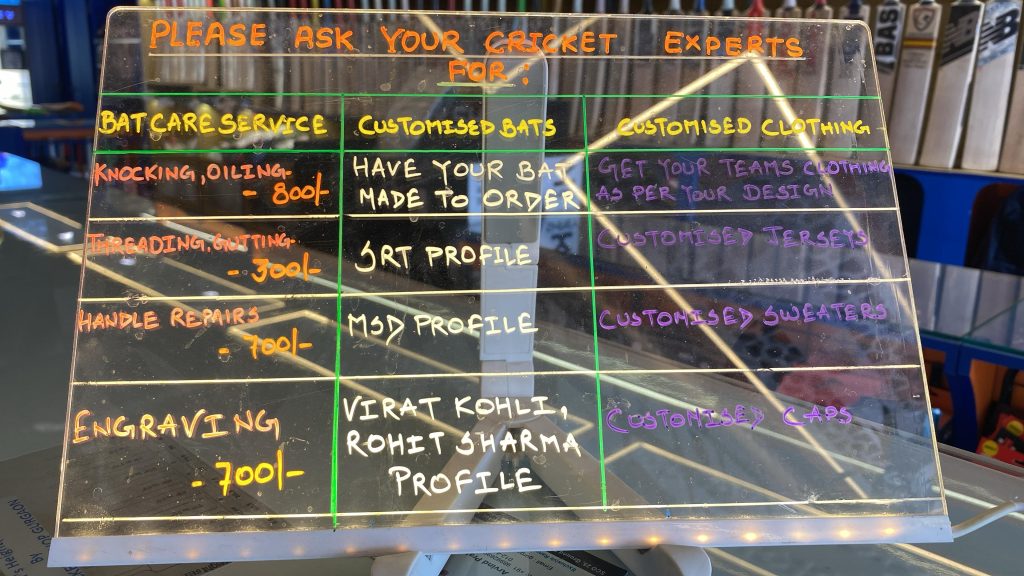 PLEASE ASK YOUR CRICKET EXPERTS
FOR:
BAT CARE SERVICE
KNOCKING, OILING-
- 800/-
THREADING, GUTTING-
- 300/-
HANDLE REPAIRS
- 700/-
ENGRAVING
- 700/-
CUSTOMISED BATS
HAVE YOUR BAT
MADE TO ORDER
SRT PROFILE
MSD PROFILE
VIRAT KOHLI,
ROHIT SHARMA
PROFILE
CUSTOMISED CLOTHING
GET YOUR TEAMS CLOTHING
AS PER YOUR DESIGN
CUSTOMISED JERSEYS
CUSTOMISED SWEATERS
CUSTOMISED CAPS
BAS
NB